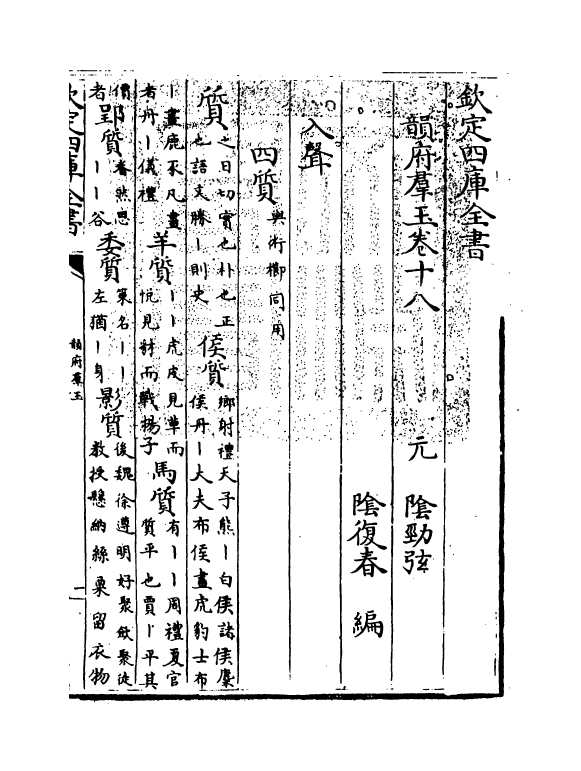 欽定四庫全書
韻府羣玉卷十八
元 陰勁弦
陰復春 編
入聲
四質與術櫛同用
質之日切實也朴也正
也語文勝丨則史
侯質鄉射禮天子熊丨白侯諸侯麋
侯丹丨大夫布侯畫虎豹士布
丨畫鹿豕凡畫
者丹丨儀禮
羊質丨丨虎皮見草而
恱見豺而戰揚子
馬質有丨丨周禮夏官
質平也賈丨平其
者
郢質丨丨谷
委質策名丨丨
左猶丨身
影質後魏徐遵明好聚斂聚徒
教授懸納絲粟留衣物
欽定四庫全書
韻府羣玉
一